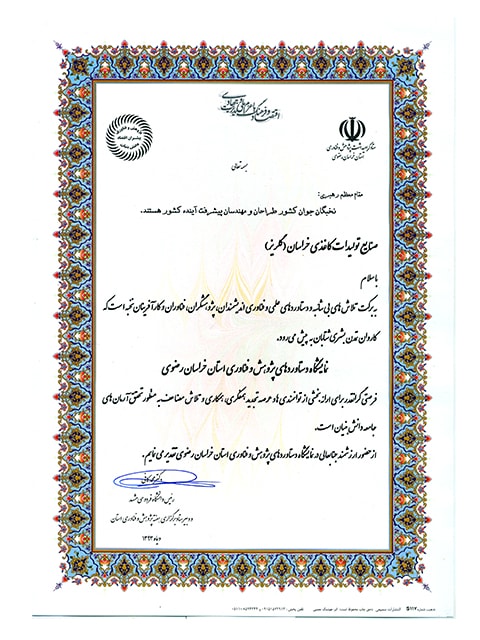 اقتصاد و فرهنگ با عزم ملی و مدیریت جهادی
ستاد گرامیداشت پژوهش و فناوری
استان خراسان رضوی
بسمه تعالی
مقام معظم رهبری:
نخبگان جوان کشور طراحان و مهندسان پیشرفت آینده کشور هستند.
صنایع تولیدات کاغذی خراسان (گلریز)
با سلام
به برکت تلاش های بی شائبه و دستاوردهای علمی و فناوری اندیشمندان، پژوهشگران، فناوران و کارآفرینان نخبه است که
کاروان تمدن بشری شتابان به پیش می رود.
نمایشگاه دستاوردهای پژوهش و فناوری استان خراسان رضوی
فرصتی گرانقدر برای ارائه بخشی از توانمندی ها و عرصه تجدید همفکری، همکاری و تلاش مضاعف به منظور تحقق آرمان های
جامعه دانش بنیان است.
از حضور ارزشمند جنابعالی در نمایشگاه دستاوردهای پژوهش و فناوری استان خراسان رضوی تقدیر می نمایم.
رئیس دانشگاه فردوسی مشهد
و دبیر ستاد برگزاری هفته پژوهش و فناوری استان
دیماه ۱۳۹۳